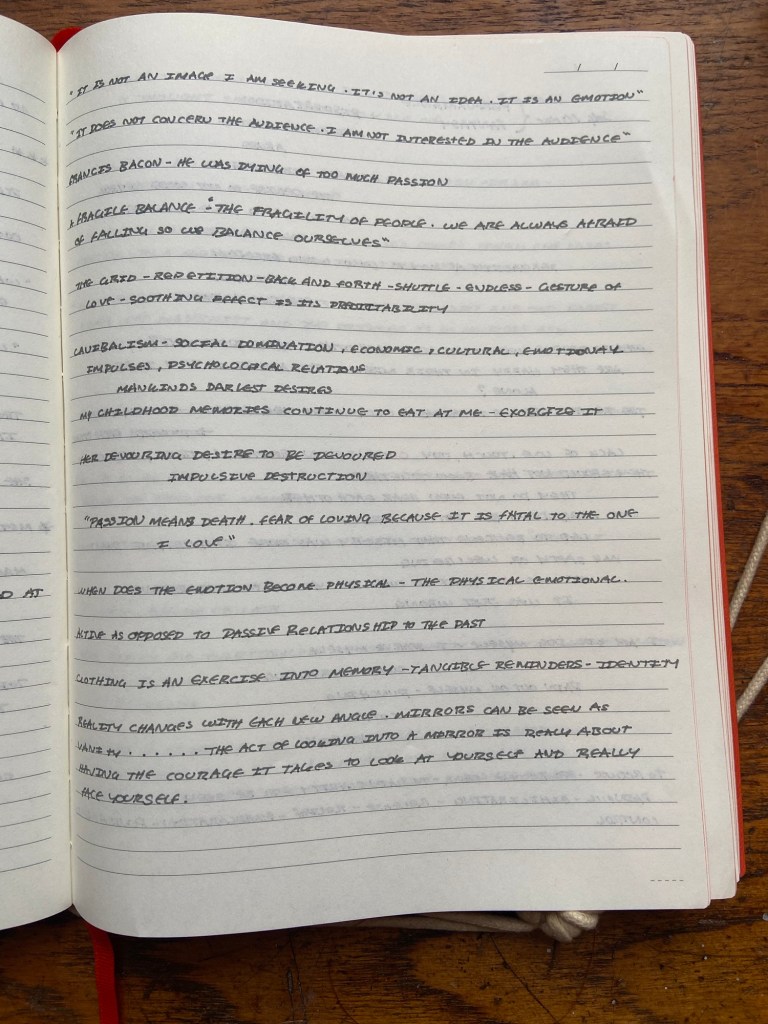 "IT IS NOT AN IMAGE I AM SEEKING. IT'S NOT AN IDEA. IT IS AN EMOTION"
"IT DOES NOT CONCERN THE AUDIENCE. I AM NOT INTERESTED IN THE AUDIENCE"
FRANCIS BACON - HE WAS DYING OF TOO MUCH PASSION
A FRAGILE BALANCE - "THE FRAGILITY OF PEOPLE. WE ARE ALWAYS AFRAID
OF FALLING SO WE BALANCE OURSELVES"
THE GRID - REPETITION - BACK AND FORTH - SHUTTLE - ENDLESS - GESTURE OF
LOVE - SOOTHING EFFECT IS ITS PREDICTABILITY
CANIBALISM - SOCIAL DOMINATION, ECONOMIC, CULTURAL, EMOTIONAL
IMPULSES, PSYCHOLOGICAL RELATIONS
MANKINDS DARKEST DESIRES
MY CHILDHOOD MEMORIES CONTINUE TO EAT AT ME - EXORCIZE IT
HER DEVOURING DESIRE TO BE DEVOURED
IMPULSIVE DESTRUCTION
"PASSION MEANS DEATH. FEAR OF LOVING BECAUSE IT IS FATAL TO THE ONE
I LOVE"
WHEN DOES THE EMOTION BECOME PHYSICAL - THE PHYSICAL EMOTIONAL.
D AT
ACTIVE AS OPPOSED TO PASSIVE RELATIONSHIP TO THE PAST
CLOTHING IS AN EXERCISE INTO MEMORY - TANGIBLE REMINDERS - IDENTITY
REALITY CHANGES WITH EACH NEW ANGLE. MIRRORS CAN BE SEEN AS
VANITY...... THE ACT OF LOOKING INTO A MIRROR IS REALLY ABOUT
HAVING THE COURAGE IT TAKES TO LOOK AT YOURSELF AND REALLY
FACE YOURSELF.